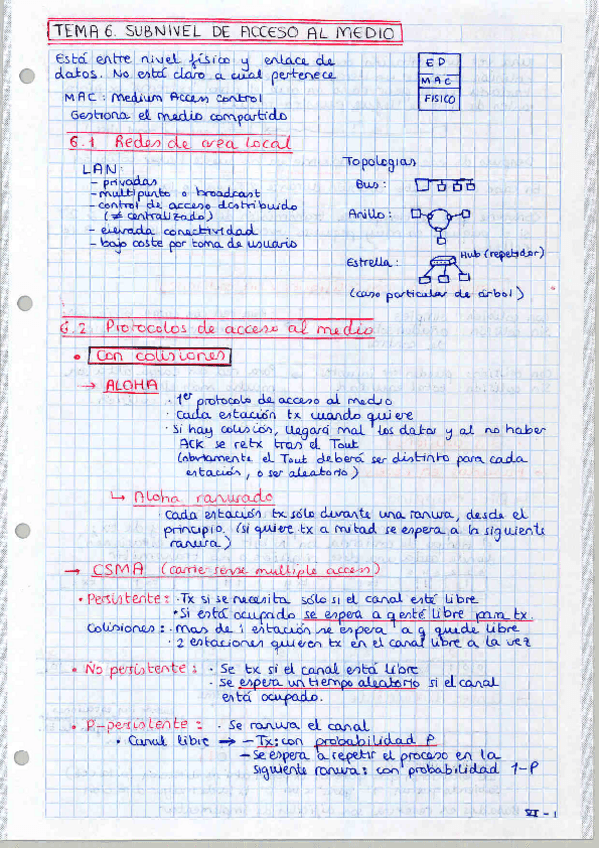 TEMA 6. SUBNIVEL DE ACCESO AL MEDIO
Está entre nivel físico y enlace de
datos. No está claro a cual pertenece
ED
MAC
FISICO
MAC: Medium Access Control
Gestiona el medio compartido
6.1 Redes de area local
LAN:
- privadas
- multipunto o broadcast
- control de acceso distribuido
(≠ centralizado)
- elevada conectividad
- bajo coste por toma de usuario
Topologias
Bus:
Anillo:
Estrella:
Hub (repetidor)
(caso particular de árbol)
6.2 Protocolos de acceso al medio
• Con colisiones
→ ALOHA
· 1er protocolo de acceso al medio
· Cada estación tx cuando quiere
· Si hay colisión, llegará mal los datos y al no haber
ACK se retx tras el Tout
(obviamente el Tout deberá ser distinto para cada
estación, o ser aleatorio)
↳ Aloha ranurado
Cada estación tx sólo durante una ranura, desde el
principio. (si quiere tx a mitad se espera a la siguiente
ranura)
→ CSMA (carrier sense multiple access)
• Persistente: · Tx si se necesita sólo si el canal esté libre
· Si está ocupado se espera a q esté libre para tx.
Colisiones: · mas de 1 estación se espera a q quede libre
· 2 estaciones quieren tx en el canal libre a la vez
• No persistente: · Se tx si el canal está libre
· Se espera un tiempo aleatorio si el canal
está ocupado.
• P-persistente: · Se ranura el canal
• Canal libre → - Tx: con probabilidad P
- Se espera a repetir el proceso en la
siguiente ranura: con probabilidad 1-P
VI - 1